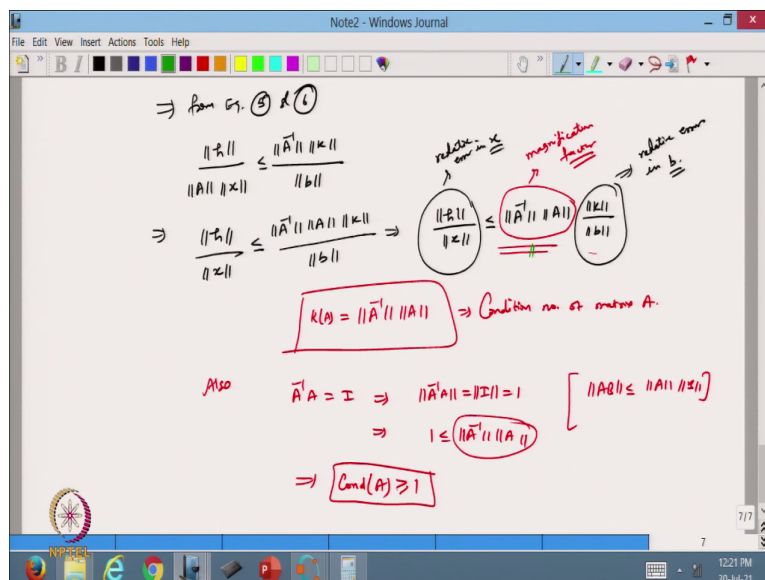 Note2 - Windows Journal
File Edit View Insert Actions Tools Help
B I
⇒ from Eq. ⑤ & ⑥
||h|| / ||A|| ||x|| ≤ ||A⁻¹|| ||k|| / ||b||
relative error in x
magnification factor
⇒ relative error in b.
⇒ ||h|| / ||x|| ≤ ||A⁻¹|| ||A|| ||k|| / ||b|| ⇒ ||h|| / ||x|| ≤ ||A⁻¹|| ||A|| ||k|| / ||b||
K(A) = ||A⁻¹|| ||A|| ⇒ Condition no. of matrix A.
Also A⁻¹A = I ⇒ ||A⁻¹A|| = ||I|| = 1 [ ||AB|| ≤ ||A|| ||B|| ]
⇒ 1 ≤ ||A⁻¹|| ||A||
⇒ Cond(A) ≥ 1
NPTEL
7/7
7
12:21 PM
20-Jul-21